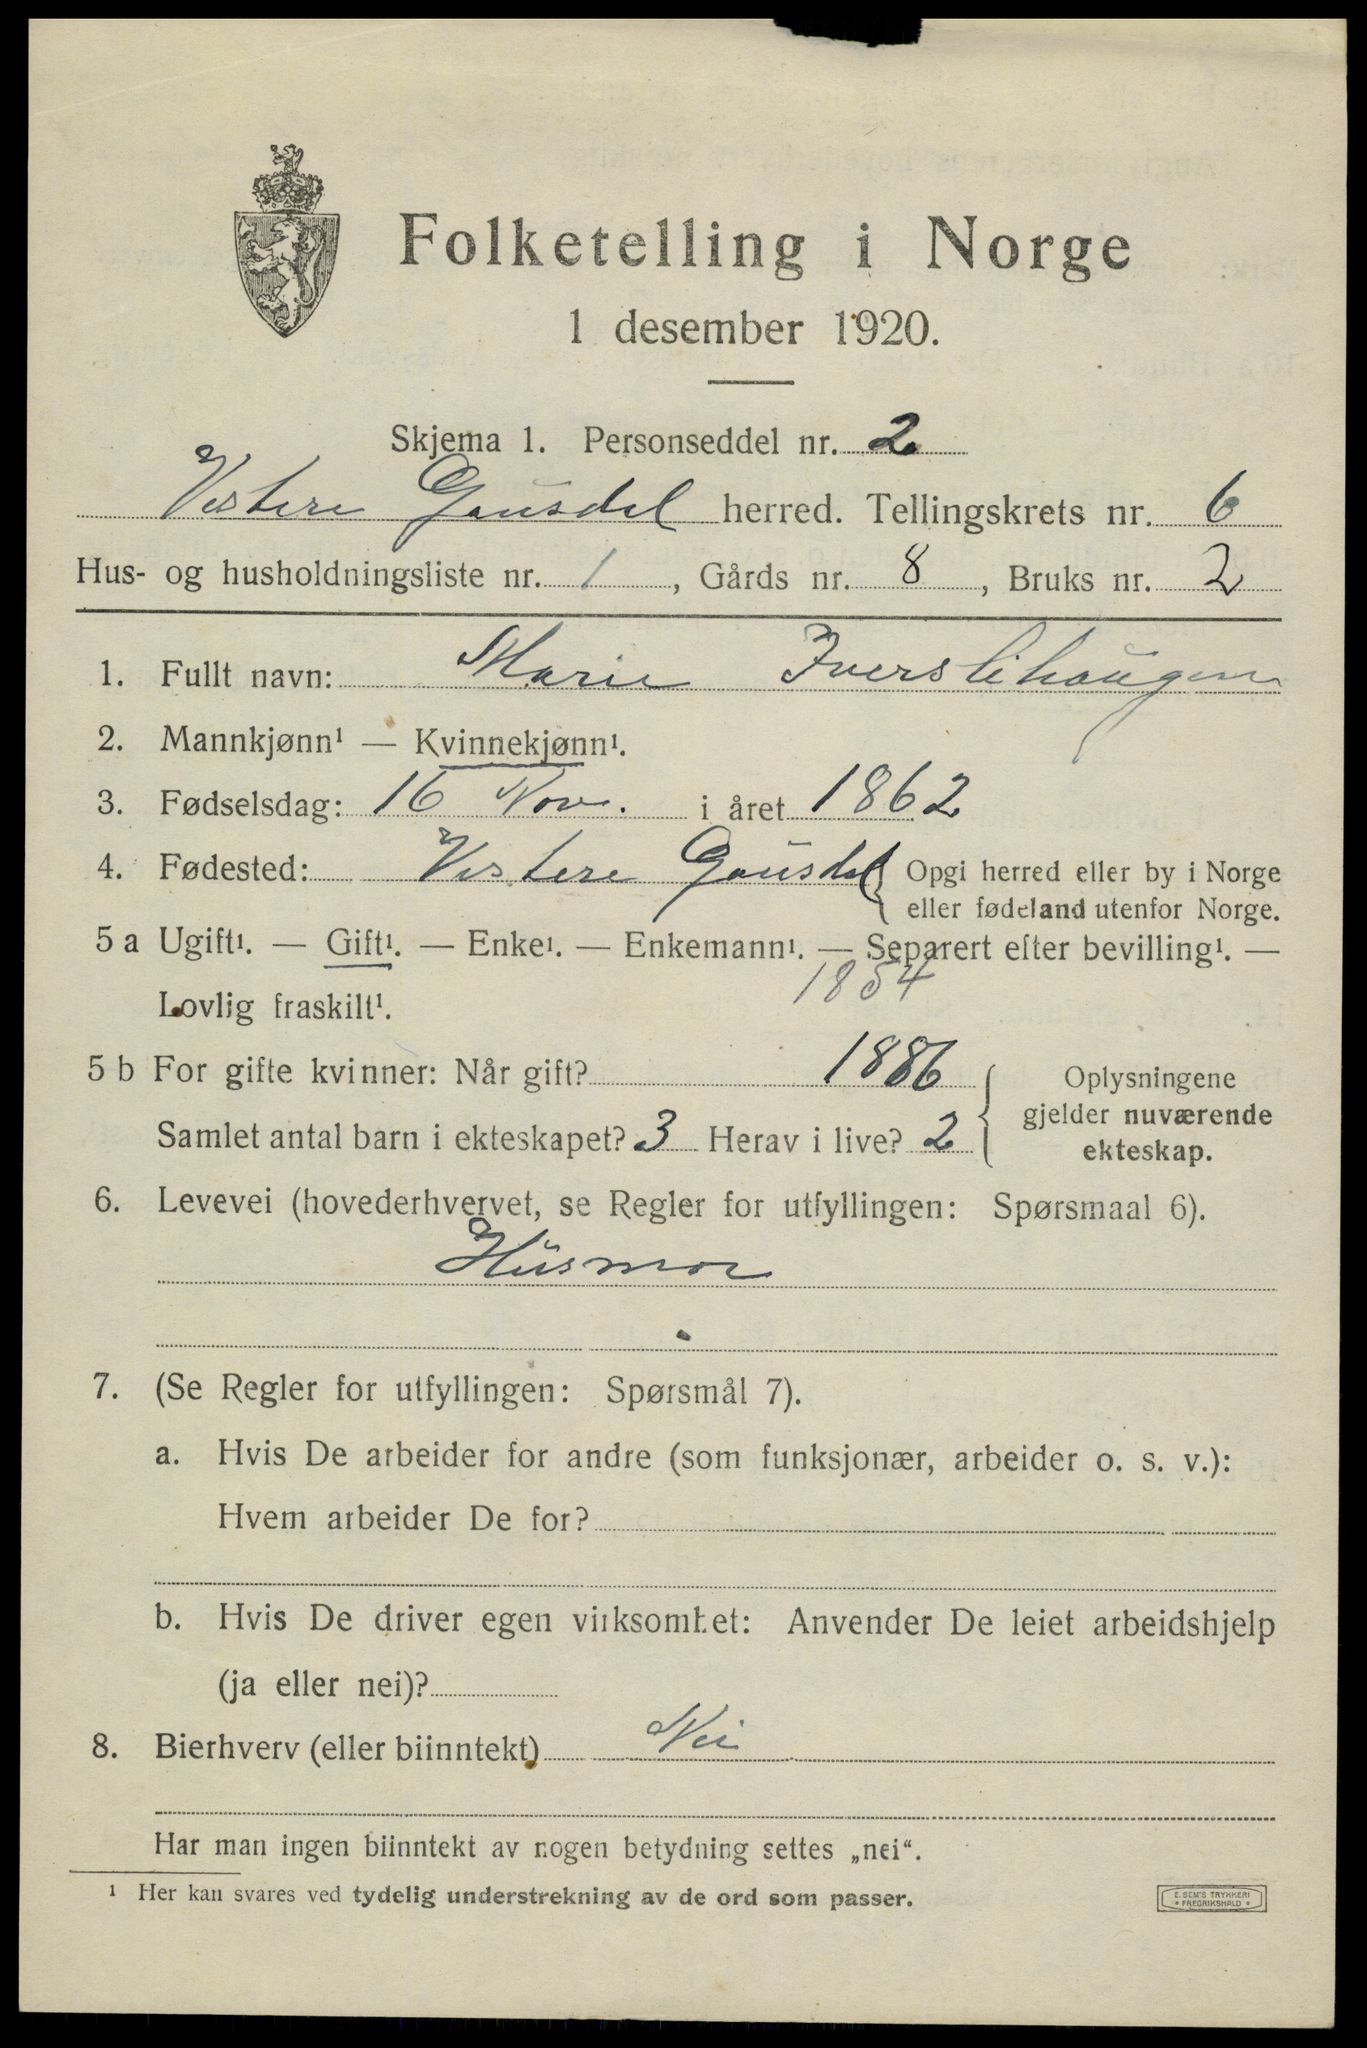 Folketelling i Norge
1 desember 1920.
Skjema 1. Personseddel nr. 2
Vestere Gausdal herred. Tellingskrets nr. 6
Hus- og husholdningsliste nr. 1, Gårds nr. 8, Bruks nr. 2
1. Fullt navn: Marie Iverslihaugen
2. Mannkjønn¹ — Kvinnekjønn¹.
3. Fødselsdag: 16 Nov. i året 1862
4. Fødested: Vestere Gausdal { Opgi herred eller by i Norge
eller fødeland utenfor Norge.
5 a Ugift¹. — Gift¹. — Enke¹. — Enkemann¹. — Separert efter bevilling¹. —
1854
Lovlig fraskilt¹.
5 b For gifte kvinner: Når gift? 1886 { Oplysningene
gjelder nuværende
Samlet antal barn i ekteskapet? 3 Herav i live? 2
ekteskap.
6. Levevei (hovederhvervet, se Regler for utfyllingen: Spørsmaal 6).
Husmor
7. (Se Regler for utfyllingen: Spørsmål 7).
a. Hvis De arbeider for andre (som funksjonær, arbeider o. s. v.):
Hvem arbeider De for?
b. Hvis De driver egen virksomhet: Anvender De leiet arbeidshjelp
(ja eller nei)?
8. Bierhverv (eller biinntekt) Nei
Har man ingen biinntekt av nogen betydning settes „nei“.
¹ Her kan svares ved tydelig understrekning av de ord som passer.
E. SEM'S TRYKKERI
• FREDRIKSHALD •